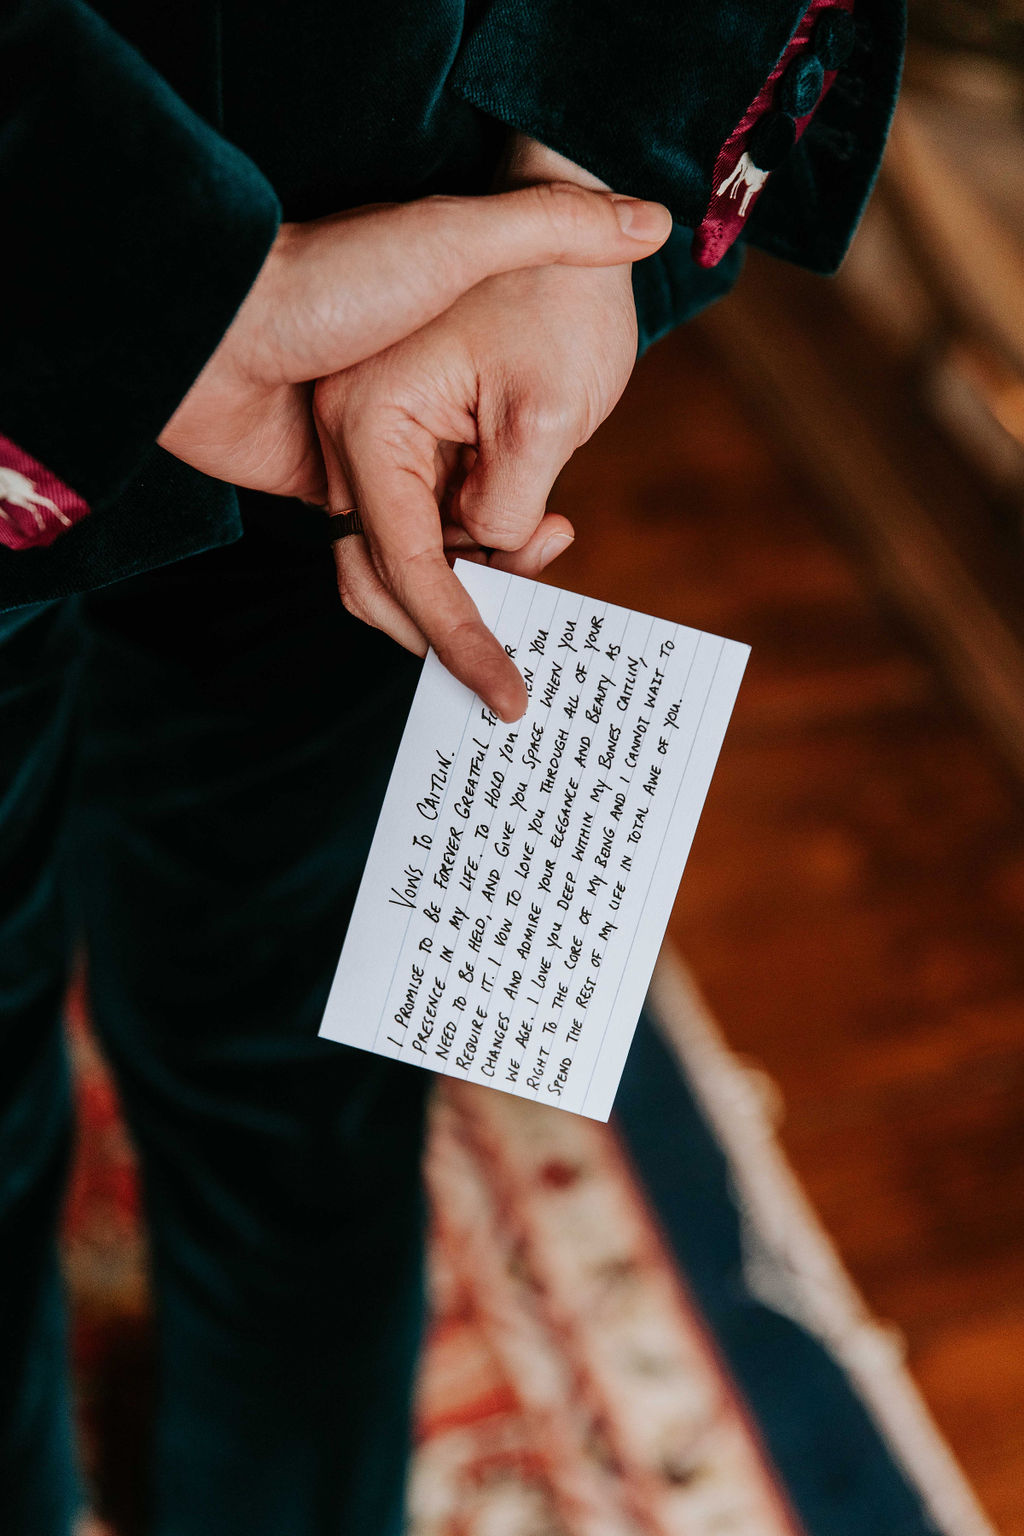 VOWS TO CAITLIN.
I PROMISE TO BE FOREVER GREATFUL
PRESENCE IN MY LIFE. TO HOLD YOU YOU
NEED TO BE HELD, AND GIVE YOU SPACE WHEN YOU
REQUIRE IT. I VOW TO LOVE YOU THROUGH ALL OF YOUR
CHANGES AND ADMIRE YOUR ELEGANCE AND BEAUTY AS
WE AGE. I LOVE YOU DEEP WITHIN MY BONES CAITLIN,
RIGHT TO THE CORE OF MY BEING AND I CANNOT WAIT TO
SPEND THE REST OF MY LIFE IN TOTAL AWE OF YOU.